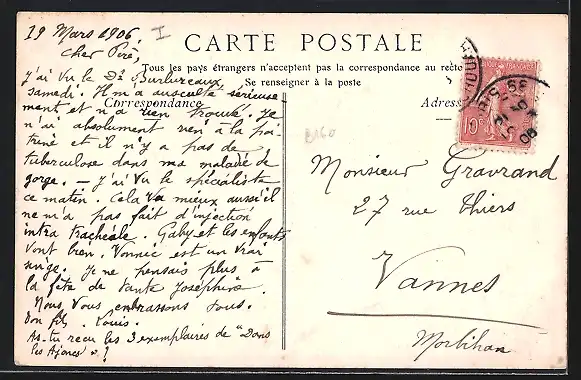 19 Mars 1906. I
CARTE POSTALE
Cher Père,
Tous les pays étrangers n'acceptent pas la correspondance au recto
Se renseigner à la poste
Correspondance
Adresse
J'ai vu le Dr Burlureaux
samedi. Il m'a ausculté sérieuse
ment et n'a rien trouvé. Je
n'ai absolument rien à la poi-
trine et il n'y a pas de
tuberculose dans ma maladie de
gorge. — J'ai vu le spécialiste
ce matin. Cela va mieux aussi il
ne m'a pas fait d'injection
intra trachéale. Gaby et les enfants
vont bien. Vonnic est un vrai
singe. Je ne pensais plus à
la fête de tante Joséphine.
Nous vous embrassons tous.
Ton fils. Louis.
As-tu reçu les 3 exemplaires de "Dans
les Ajoncs"?
Monsieur Gravrand
27 rue Thiers
Vannes
Morbihan
10c